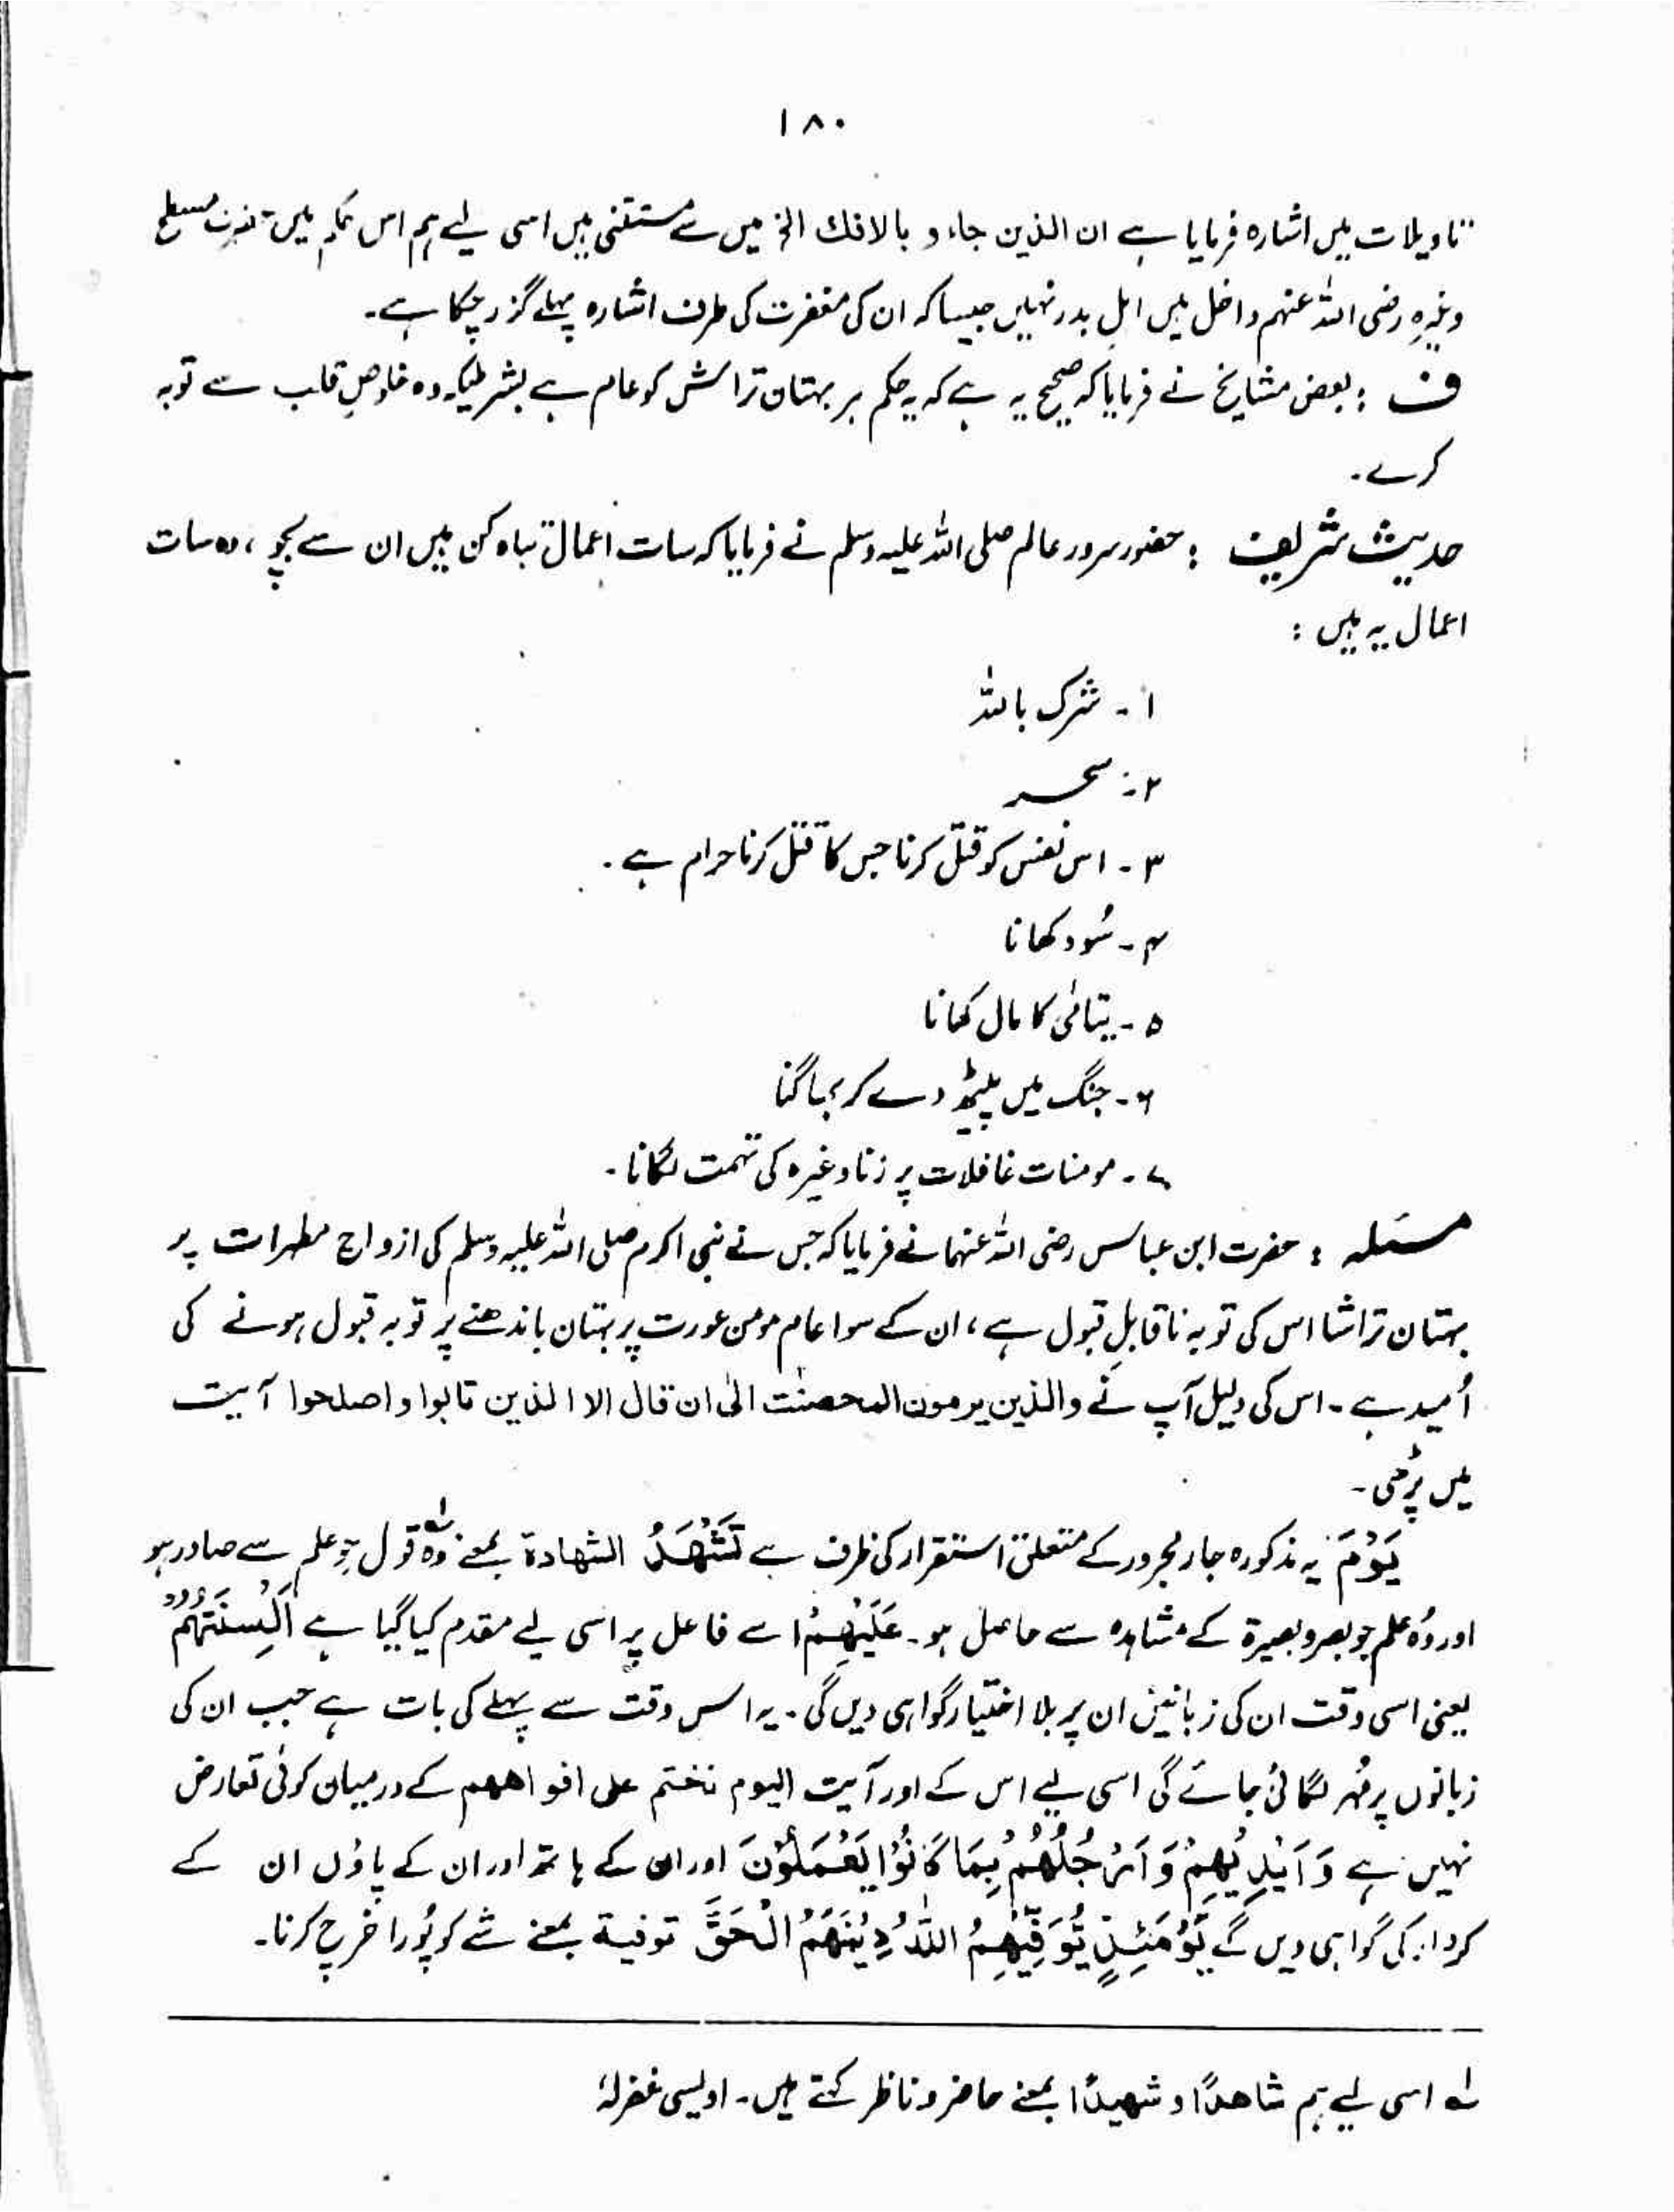 ۱۸۰
تاویلات میں اشارہ فرمایا ہے ان الذین جاءو بالافك الخ میں سے مستثنیٰ ہیں اسی لیے ہم اس حکم میں حضرت مسطح
وغیرہ رضی اللہ عنہم داخل ہیں اہلِ بدر نہیں جیسا کہ ان کی مغفرت کی طرف اشارہ پہلے گزر چکا ہے۔
ف : بعض مشایخ نے فرمایا کہ صحیح یہ ہے کہ یہ حکم ہر بہتان تراش کو عام ہے بشرطیکہ وہ خلوصِ قلب سے توبہ
کرے۔
حدیث شریف : حضور سرور عالم صلی اللہ علیہ وسلم نے فرمایا کہ سات اعمال تباہ کن ہیں ان سے بچو ، وہ سات
اعمال یہ ہیں :
۱ - شرک باللہ
۲ - سحر
۳ - اس نفس کو قتل کرنا جس کا قتل کرنا حرام ہے ۔
۴ - سُود کھانا
۵ - یتامٰی کا مال کھانا
۶ - جنگ میں پیٹھ دے کر بھاگنا
۷ - مومنات غافلات پر زنا وغیرہ کی تہمت لگانا ۔
مسئلہ : حضرت ابن عباس رضی اللہ عنہما نے فرمایا کہ جس نے نبی اکرم صلی اللہ علیہ وسلم کی ازواج مطہرات پر
بہتان تراشا اس کی توبہ ناقابلِ قبول ہے ، ان کے سوا عام مومن عورت پر بہتان باندھنے پر توبہ قبول ہونے کی
اُمید ہے ۔ اس کی دلیل آپ نے والذین یرمون المحصنٰت الیٰ ان قال الا الذین تابوا واصلحوا آیت
میں پڑھی ۔
یَوْمَ یہ مذکورہ جار مجرور کے متعلق استقرار کی ظرف ہے تَشْهَدُ الشهادة بمعنے وہ لہ قول جو علم سے صادر ہو
اور وُہ علم جو بصر و بصیرۃ کے مشاہدہ سے حاصل ہو ۔ عَلَیْهِمْ اسے فاعل پر اسی لیے مقدم کیا گیا ہے اَلْسِنَتُهُمْ
یعنی اسی وقت ان کی زبانیں ان پر بلا اختیار گواہی دیں گی ۔ یہ اس وقت سے پہلے کی بات ہے جب ان کی
زبانوں پر مُہر لگائی جائے گی اسی لیے اس کے اور آیت الیوم نختم علی افواههم کے درمیان کوئی تعارض
نہیں ہے وَ اَیْدِیْهِمْ وَ اَرْجُلُهُمْ بِمَا كَانُوْا یَعْمَلُوْنَ اور ان کے ہاتھ اور ان کے پاؤں ان کے
کردار کی گواہی دیں گے یَوْمَئِذٍ یُّوَفِّیْهِمُ اللّٰهُ دِیْنَهُمُ الْحَقَّ توفیة بمعنے شے کو پُورا خرچ کرنا۔
لہ اسی لیے ہم شاهداً و شهیداً بمعنے حاضر و ناظر کہتے ہیں ۔ اویسی غفرلہٗ